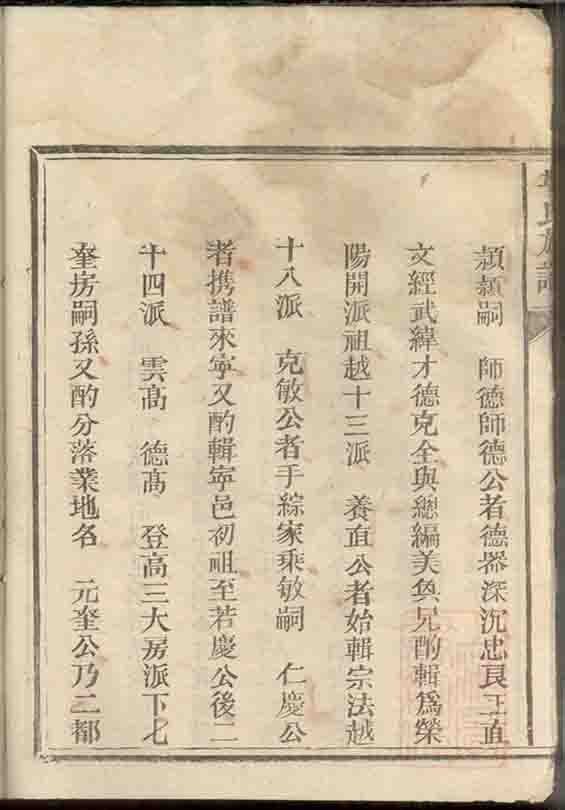 氏族譜
頴頴嗣 師德師德公者德器深沉忠良正直
文經武緯才德克全與總編美奐兄酌輯爲榮
陽開派祖越十三派 養直公者始輯宗法越
十八派 克敏公者手綜家乘敏嗣 仁慶公
者携譜來寜又酌輯寜邑初祖至若慶公後二
十四派 雲高 德高 登高三大房派下七
奎房嗣孫又酌分落業地名 元奎公乃二都